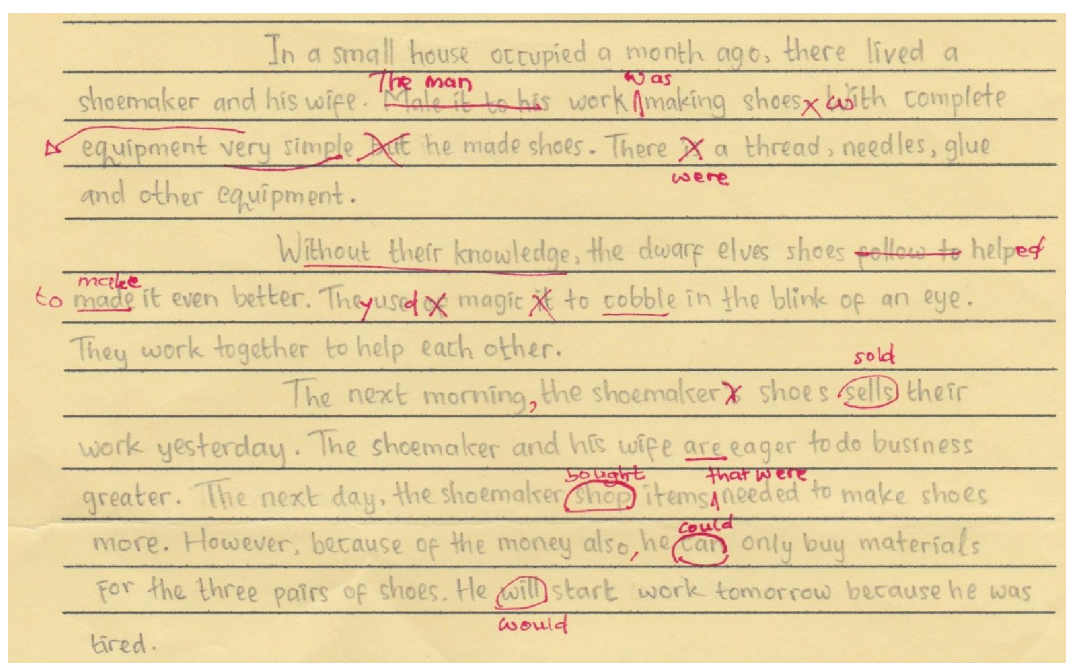 In a small house occupied a month ago, there lived a
The man was
shoemaker and his wife. Male it to his work making shoes with complete
equipment very simple but he made shoes. There is a thread, needles, glue
were
and other equipment.
Without their knowledge, the dwarf elves shoes follow to helped
make
to made it even better. They used magic it to cobble in the blink of an eye.
They work together to help each other.
sold
The next morning, the shoemaker shoes sells their
work yesterday. The shoemaker and his wife are eager to do business
bought that were
greater. The next day, the shoemaker shop items needed to make shoes
could
more. However, because of the money also, he can only buy materials
for the three pairs of shoes. He will start work tomorrow because he was
would
tired.